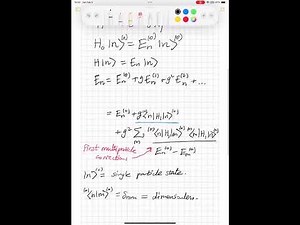 H₀|n⟩⁽⁰⁾ = Eₙ⁽⁰⁾|n⟩⁽⁰⁾
H|n⟩ = Eₙ|n⟩
Eₙ = Eₙ⁽⁰⁾ + gEₙ⁽¹⁾ + g²Eₙ⁽²⁾ + ...
= Eₙ⁽⁰⁾ + g⁽⁰⁾⟨n|H₁|n⟩⁽⁰⁾
+ g² Σ ⁽⁰⁾⟨n|H₁|m⟩⁽⁰⁾ ⁽⁰⁾⟨m|H₁|n⟩⁽⁰⁾
First multiparticle correction
Eₙ⁽⁰⁾ − Eₘ⁽⁰⁾
|n⟩⁽⁰⁾ = single particle state.
⁽⁰⁾⟨n|m⟩⁽⁰⁾ = δₙₘ = dimensionless.